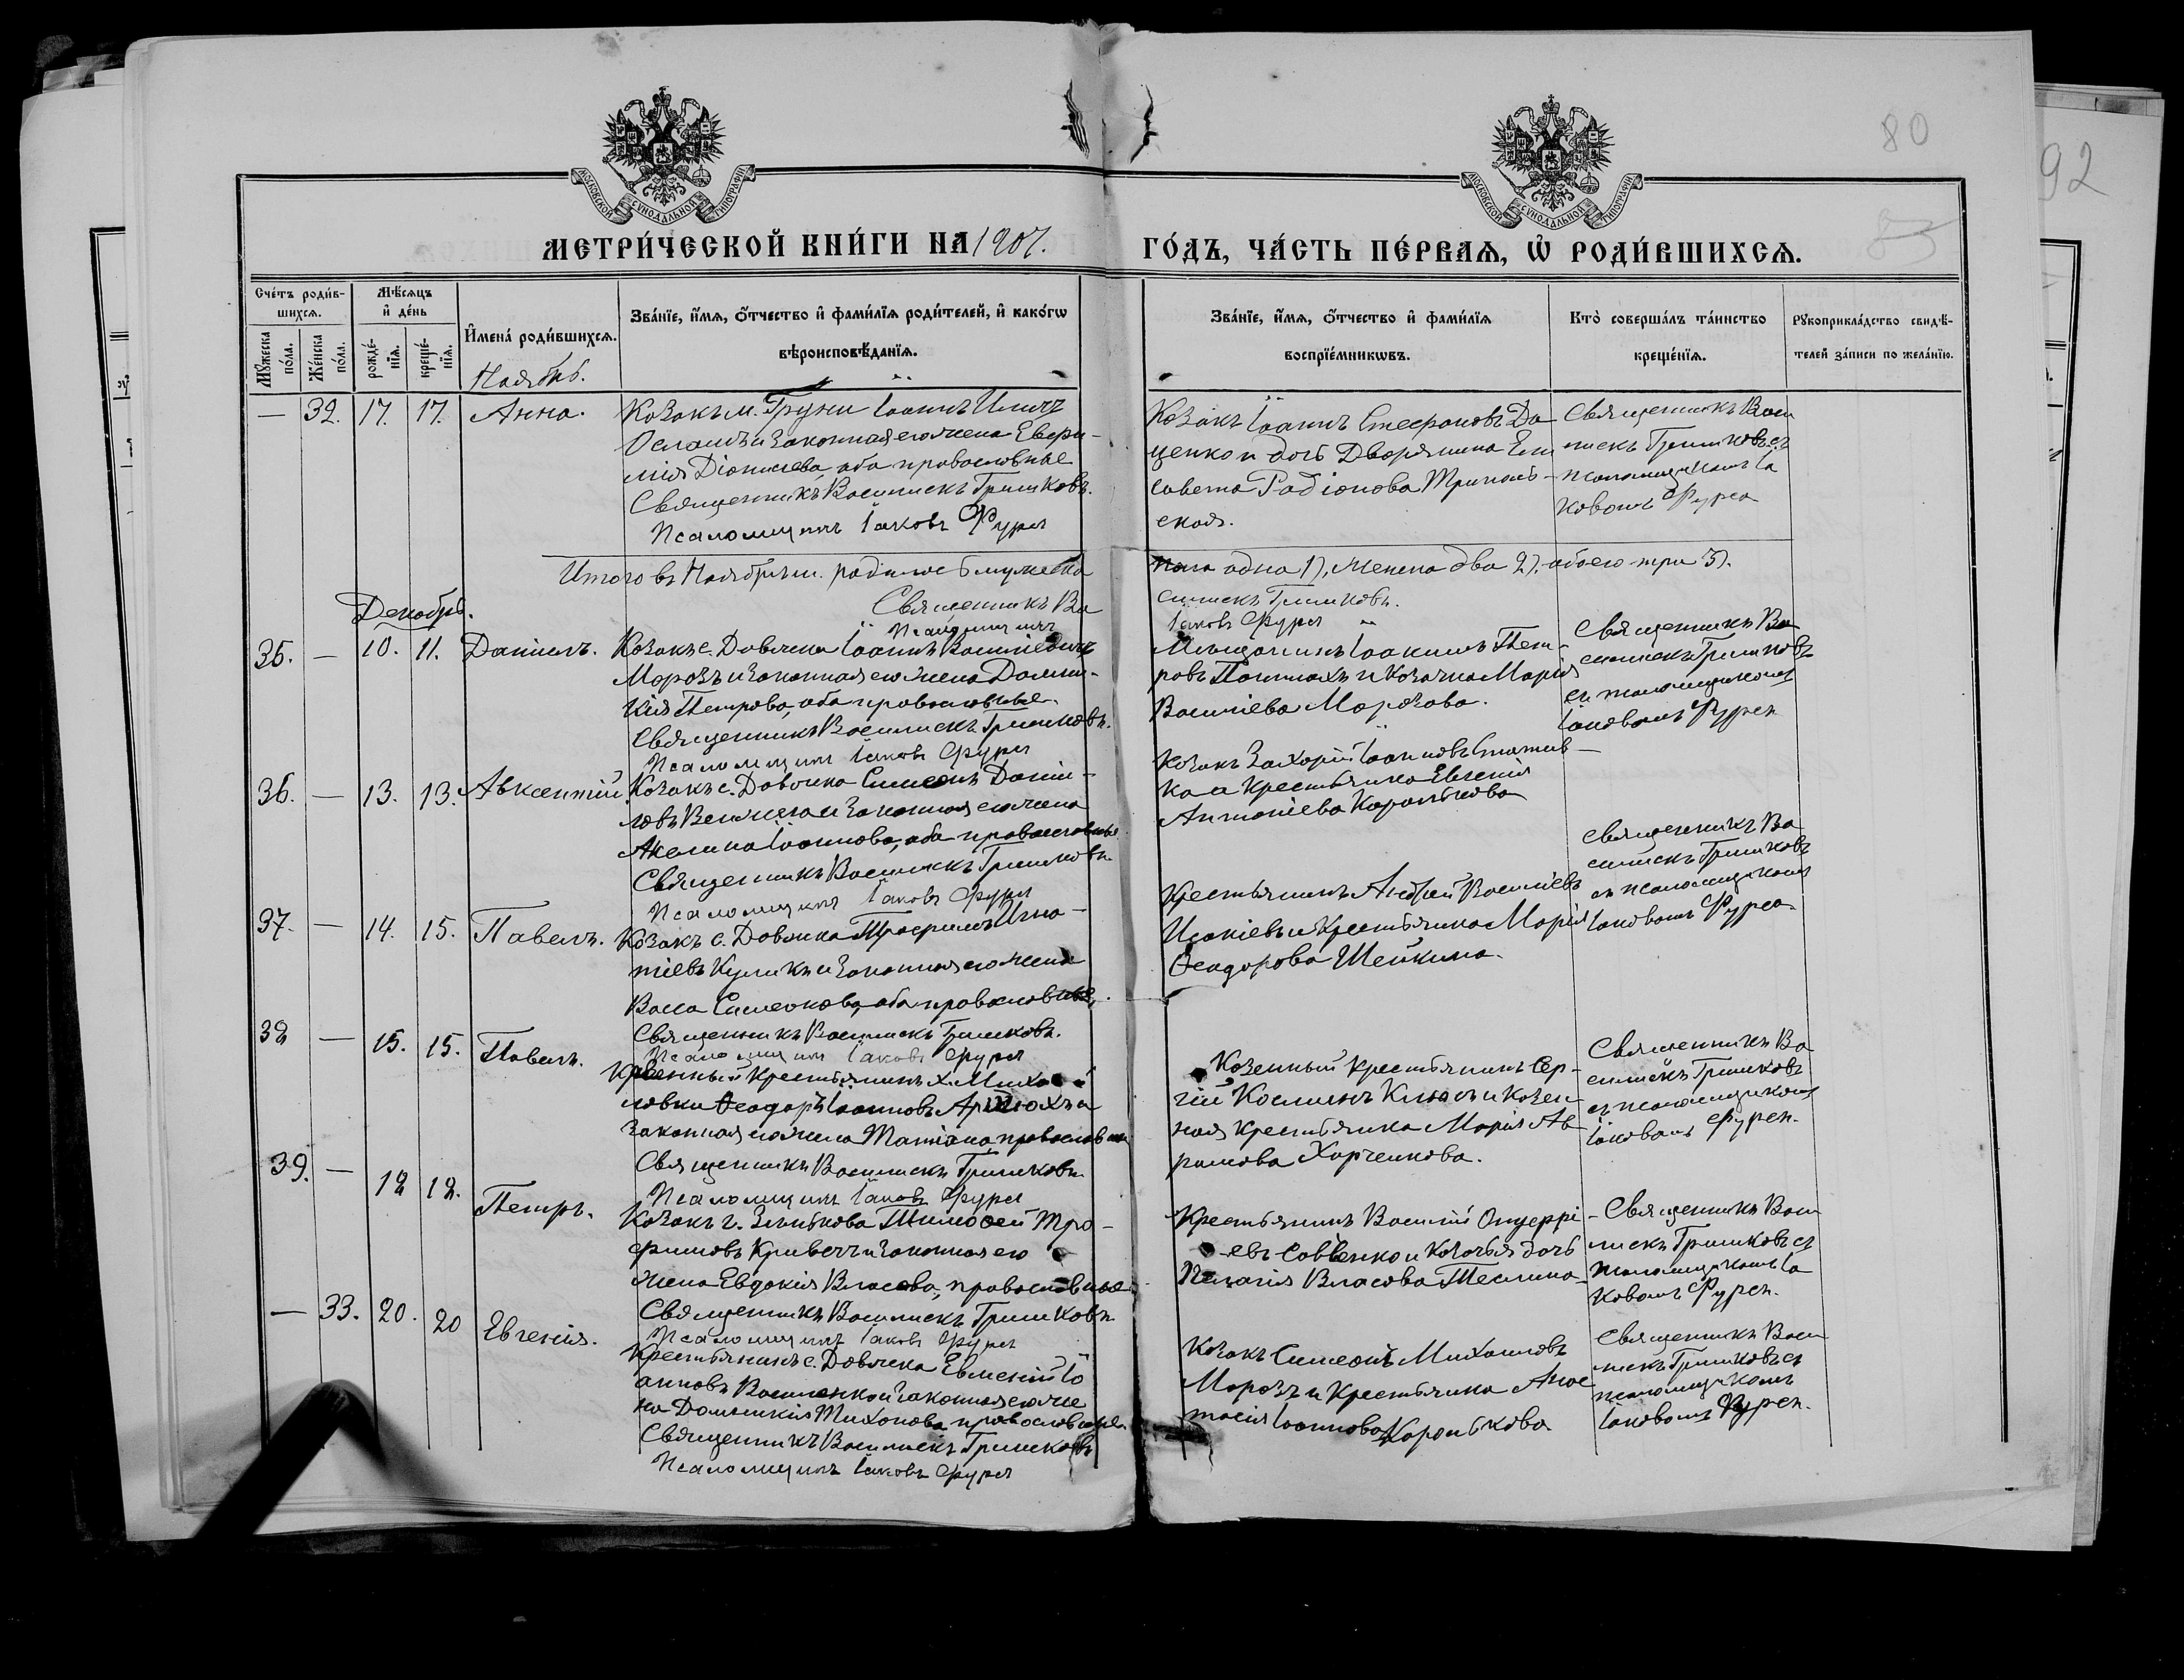 80
92
МОСКОВСКОЙ СѴНОДАЛЬНОЙ ТИПОГРАФІИ
МОСКОВСКОЙ СѴНОДАЛЬНОЙ ТИПОГРАФІИ
МЕТРИ́ЧЕСКОЙ КНИ́ГИ НА 1907.
ГО́ДЪ, ЧА́СТЬ ПЕ́РВАѦ, Ѡ҆ РОДИ́ВШИХСѦ.
Сче́тъ роди́в-
шихсѧ.
Мѣ́сѧцъ
и҆ де́нь
Мꙋ́жеска по́ла.
Же́нска по́ла.
рожде́-нїѧ.
креще́-нїѧ.
И҆мена̀ роди́вшихсѧ.
Зва́нїе, и҆́мѧ, ѻ҆́тчество и҆ фами́лїѧ роди́телей, и҆ како́гѡ
вѣроисповѣ́данїѧ.
Зва́нїе, и҆́мѧ, ѻ҆́тчество и҆ фами́лїѧ
воспрїе́мникѡвъ.
Кто̀ соверша́лъ та́инство
креще́нїѧ.
Рꙋкоприкла́дство свидѣ́-
телей за́писи по жела́нїю.
Ноябрь.
— 32. 17. 17. Анна.
Козакъ м. Груни Іоаннъ Ильичъ
и законная его жена Евфи-
мія Діонисіева, оба православные
Священникъ Василискъ Гришковъ.
Псаломщикъ Іаковъ Фурса
Козакъ Іоаннъ Стефановъ До
ценко и дочь Дворянина Ели
савета Радіонова Триполь-
ская.
Священникъ Васи
лискъ Гришковъ съ
псаломщикомъ Іа
ковомъ Фурса
Итого въ Ноябрѣ м. родилось мужеска
пола одна 1), женска два 2). обоего три 3).
Священникъ Ва
силискъ Гришковъ.
Псаломщикъ
Іаковъ Фурса
Декабрь.
35. — 10. 11. Даніилъ.
Козакъ с. Довжика Іоаннъ Василіевичъ
Морозъ и законная его жена Домни-
кія Петрова, оба православные.
Священникъ Василискъ Гришковъ.
Псаломщикъ Іаковъ Фурса
Мѣщанинъ Іоакимъ Пет-
ровъ и козачка Марія
Василіева Морозова.
Священникъ Ва
силискъ Гришковъ
съ псаломщикомъ
Іаковомъ Фурсой
36. — 13. 13. Авксентій.
Козакъ с. Довжика Симеонъ Даніи-
ловъ и законная его жена
Акелина Іоаннова, оба православные.
Священникъ Василискъ Гришковъ.
Псаломщикъ Іаковъ Фурса
Козакъ Захарій Іоанновъ Статив-
ка и крестьянка Евгенія
Антоніева Коротькова
Священникъ Ва
силискъ Гришковъ
съ псаломщикомъ
Іаковомъ Фурса.
37. — 14. 15. Павелъ.
Козакъ с. Довжика Трофимъ Игна-
тіевъ Куликъ и законная его жена
Васса Симеонова, оба православные.
Священникъ Василискъ Гришковъ.
Псаломщикъ Іаковъ Фурса
Крестьянинъ Андрей Василіевъ
Исакіевъ и крестьянка Марія
Ѳеодорова Шейкина.
38 — 15. 15. Павелъ.
Казенный крестьянинъ х. Михай
ловки Ѳеодоръ Іоанновъ Артюхъ и
законная его жена Татіана, православные
Священникъ Василискъ Гришковъ.
Псаломщикъ Іаковъ Фурса
Казенный крестьянинъ Сер-
гій Косминъ и казен
ная крестьянка Марія Ав
рамова Харченкова.
Священникъ Ва
силискъ Гришковъ
съ псаломщикомъ
Іаковомъ Фурсой.
39. — 18 18. Петръ.
Козакъ г. Зѣнькова Тимоѳей Тро-
фимовъ Кривечъ и законная его
жена Евдокія Власова, православные
Священникъ Василискъ Гришковъ.
Псаломщикъ Іаковъ Фурса
Крестьянинъ Василій Онуфрі-
евъ Савенко и козачья дочь
Пелагія Власова Теслина
Священникъ Васи
лискъ Гришковъ съ
псаломщикомъ Іа
ковомъ Фурсой.
— 33. 20. 20 Евгенія.
Крестьянинъ с. Довжика Евменій Іо
анновъ Василенко и законная его же
на Домникія Тихонова, православные.
Священникъ Василискъ Гришковъ
Псаломщикъ Іаковъ Фурса
Козакъ Симеонъ Михаиловъ
Морозъ и крестьянка Анас
тасія Іоаннова Коротькова
Священникъ Васи
лискъ Гришковъ съ
псаломщикомъ
Іаковомъ Фурсой.